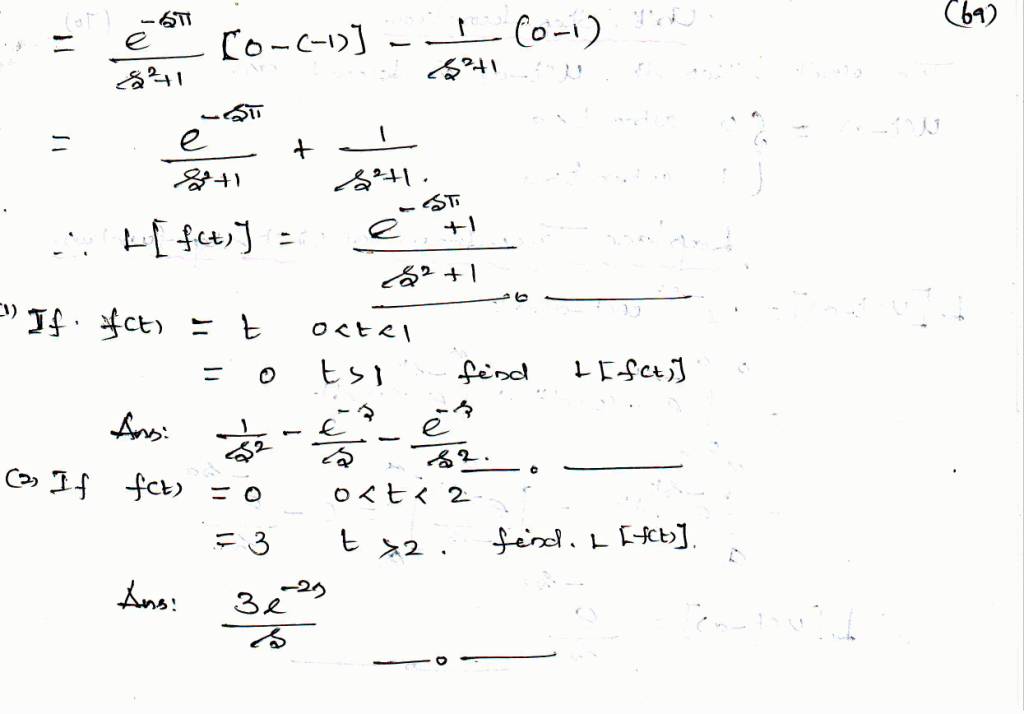 (69)
= e^{-sπ}/(s²+1) [0-(-1)] - 1/(s²+1) (0-1)
= e^{-sπ}/(s²+1) + 1/(s²+1).
∴ L[f(t)] = (e^{-sπ}+1)/(s²+1)
(1) If f(t) = t 0<t<1
= 0 t>1 find L[f(t)]
Ans: 1/s² - e^{-s}/s - e^{-s}/s².
(2) If f(t) = 0 0<t<2
= 3 t>2. find. L[f(t)].
Ans: 3e^{-2s}/s